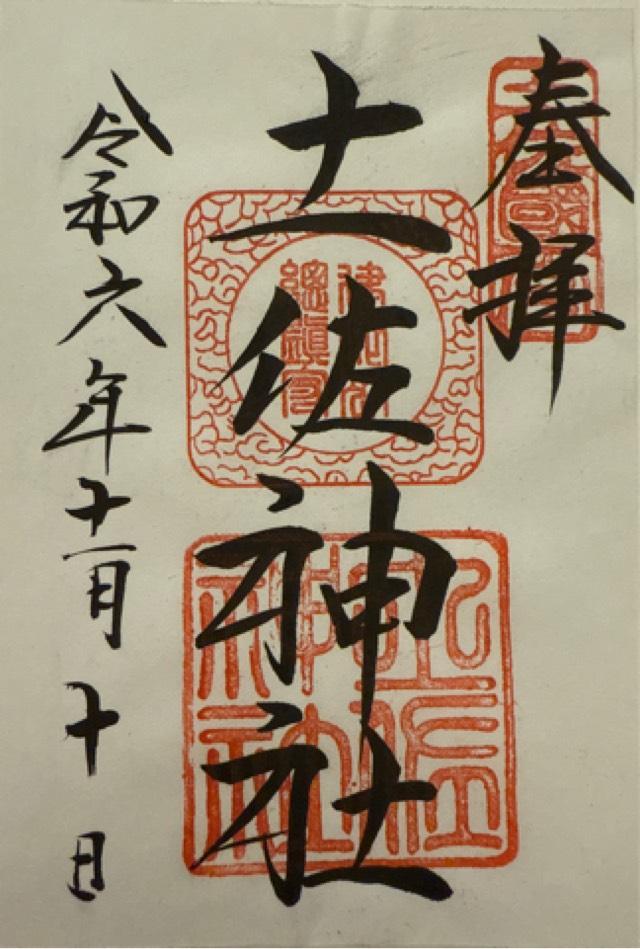 奉拝
土佐神社
令和六年十一月十日
建依別
總鎮守
土佐
神社